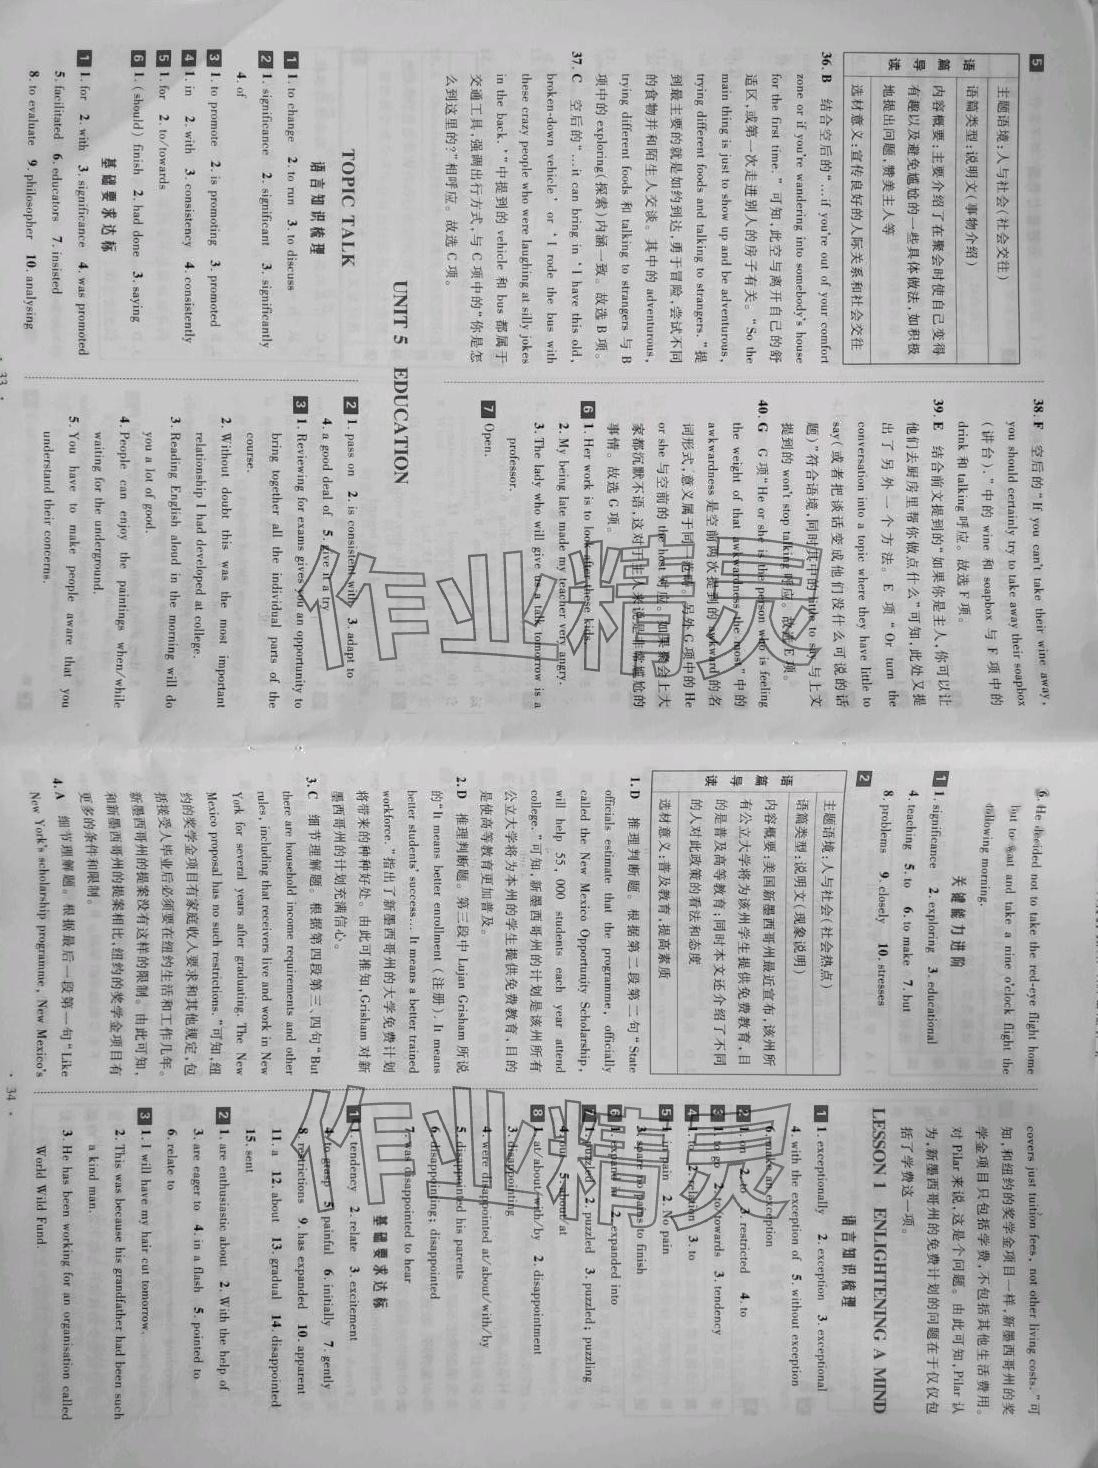 5
语篇导读
主题语境：人与社会（社会交往）
语篇类型：说明文（事物介绍）
内容概要：主要介绍了在聚会时使自己变得
有趣以及避免尴尬的一些具体做法，如积极
地提出问题，赞美主人等
选材意义：宣传良好的人际关系和社会交往
36. B 结合空后的“...if you're out of your comfort
zone or if you're wandering into somebody's house
for the first time.”可知，此空与离开自己的舒
适区，或第一次走进别人的房子有关。“So the
main thing is just to show up and be adventurous,
trying different foods and talking to strangers.”提
到最主要的就是如约到达，勇于冒险，尝试不同
的食物并和陌生人交谈。其中的 adventurous,
trying different foods 和 talking to strangers 与 B
项中的 exploring（探索）内涵一致。故选 B 项。
37. C 空后的“...it can bring in ‘I have this old,
broken-down vehicle’ or ‘I rode the bus with
these crazy people who were laughing at silly jokes
in the back.’”中提到的 vehicle 和 bus 都属于
交通工具，强调出行方式，与 C 项中的“你是怎
么到这里的？”相呼应。故选 C 项。
38. F 空后的“If you can't take their wine away,
you should certainly try to take away their soapbox
（讲台）.”中的 wine 和 soapbox 与 F 项中的
drink 和 talking 呼应。故选 F 项。
39. E 结合前文提到的“如果你是主人，你可以让
他们去厨房里帮你做点什么”可知，此处又提
出了另外一个方法。E 项“Or turn the
conversation into a topic where they have little to
say（或者把谈话变成他们没什么可说的话
题）”符合语境，同时其中的 little to say 与上文
提到的 won't stop talking 呼应。故选 E 项。
40. G G 项“He or she is the person who is feeling
the weight of that awkwardness the most”中的
awkwardness 是空前两次提到的 awkward 的名
词形式，意义属于同一范畴。另外 G 项中的 He
or she 与空前的 the host 对应。如果聚会上大
家都沉默不语，这对于主人来说是非常尴尬的
事情。故选 G 项。
6 1. Her work is to look after these kids.
2. My being late made my teacher very angry.
3. The lady who will give us a talk tomorrow is a
professor.
7 Open.
UNIT 5 EDUCATION
TOPIC TALK
语言知识梳理
1 1. to change 2. to run 3. to discuss
2 1. significance 2. significant 3. significantly
4. of
3 1. to promote 2. is promoting 3. promoted
4 1. in 2. with 3. consistency 4. consistently
5 1. for 2. to/towards
6 1. (should) finish 2. had done 3. saying
基础要求达标
1 1. for 2. with 3. significance 4. was promoted
5. facilitated 6. educators 7. insisted
8. to evaluate 9. philosopher 10. analysing
2 1. pass on 2. is consistent with 3. adapt to
4. a good deal of 5. give it a try
3 1. Reviewing for exams gives you an opportunity to
bring together all the individual parts of the
course.
2. Without doubt this was the most important
relationship I had developed at college.
3. Reading English about in the morning will do
you a lot of good.
4. People can enjoy the paintings when/while
waiting for the underground.
5. You have to make people aware that you
understand their concerns.
· 33 ·
6. He decided not to take the red-eye flight home
but to wait and take a nine o'clock flight the
following morning.
关键能力进阶
1 1. significance 2. exploring 3. educational
4. teaching 5. to 6. to make 7. but
8. problems 9. closely 10. stresses
2
语篇导读
主题语境：人与社会（社会热点）
语篇类型：说明文（现象说明）
内容概要：美国新墨西哥州最近宣布，该州所
有公立大学将为该州学生提供免费教育，目
的是普及高等教育；同时本文还介绍了不同
的人对此政策的看法和态度
选材意义：普及教育，提高素质
1. D 推理判断题。根据第二段第二句“State
officials estimate that the programme, officially
called the New Mexico Opportunity Scholarship,
will help 55,000 students each year attend
college.”可知，新墨西哥州的计划是该州所有
公立大学将为本州的学生提供免费教育，目的
是使高等教育更加普及。
2. D 推理判断题。第三段中 Lujan Grisham 所说
的“It means better enrollment（注册）. It means
better students' success... It means a better trained
workforce.”指出了新墨西哥州的大学免费计划
将带来的种种好处。由此可推知，Grisham 对新
墨西哥州的计划充满信心。
3. C 细节理解题。根据第四段第三、四句“But
there are household income requirements and other
rules, including that receivers live and work in New
York for several years after graduating. The New
Mexico proposal has no such restrictions.”可知，纽
约的奖学金项目有家庭收入要求和其他规定，包
括接受人毕业后必须要在纽约生活和工作几年。
新墨西哥州的提案没有这样的限制。由此可知，
和新墨西哥州的提案相比，纽约的奖学金项目有
更多的条件和限制。
4. A 细节理解题。根据最后一段第一句“Like
New York's scholarship programme, New Mexico's
covers just tuition fees, not other living costs.”可
知，和纽约的奖学金项目一样，新墨西哥州的奖
学金项目只包括学费，不包括其他生活费用。
对 Pilar 来说，这是个问题。由此可知，Pilar 认
为，新墨西哥州的免费计划的问题在于仅仅包
括了学费这一项。
LESSON 1 ENLIGHTENING A MIND
语言知识梳理
1 1. exceptionally 2. exception 3. exceptional
4. with the exception of 5. without exception
6. make an exception
2 1. on 2. to 3. restricted 4. to
3 1. to go 2. to/towards 3. tendency
4 1. to 2. relation 3. to
5 1. in pain 2. No pain
3. spare no pains to finish
6 1. expand at 2. expanded into
7 1. puzzled 2. puzzled 3. puzzled; puzzling
4. out 5. about/at
8 1. at/about/with/by 2. disappointment
3. disappointing
4. were disappointed at/about/with/by
5. disappointed his parents
6. disappointing; disappointed
7. was disappointed to hear
基础要求达标
1 1. tendency 2. relate 3. excitement
4. to grasp 5. painful 6. initially 7. gently
8. restrictions 9. has expanded 10. apparent
11. a 12. about 13. gradual 14. disappointed
15. sent
2 1. are enthusiastic about 2. With the help of
3. are eager to 4. in a flash 5. pointed to
6. relate to
3 1. I will have my hair cut tomorrow.
2. This was because his grandfather had been such
a kind man.
3. He has been working for an organisation called
World Wild Fund.
· 34 ·
作业精灵
作业精灵